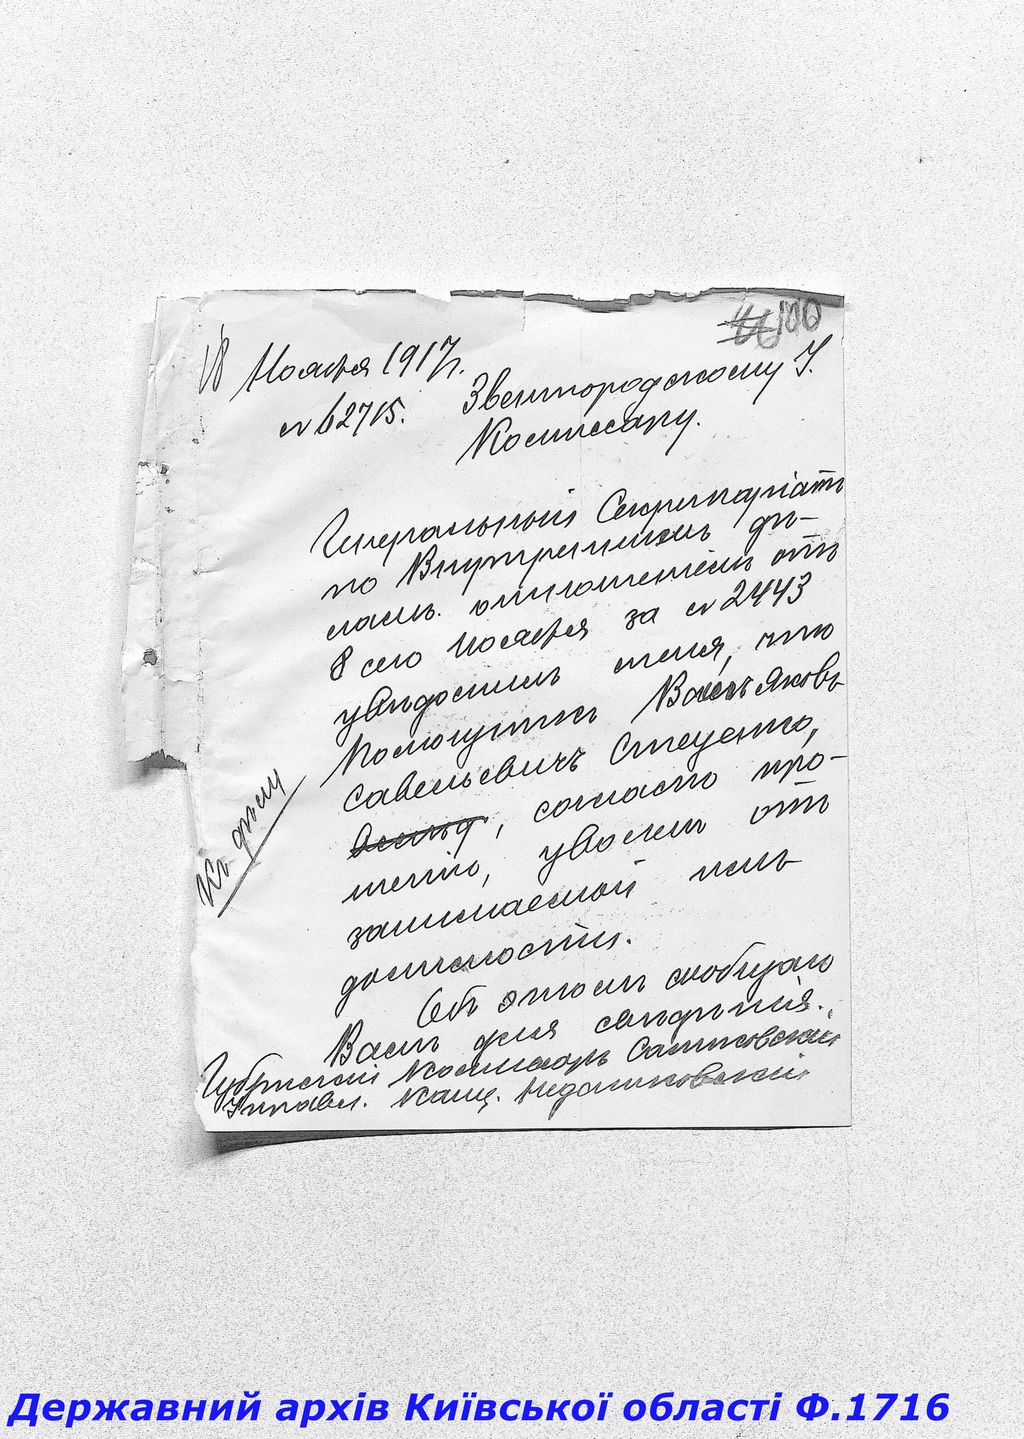 100
18 Ноября 1917 г.
№ 62715.
Звенигородскому У.
Комиссару.
Генеральный Секретаріатъ
по Внутреннимъ дѣ-
ламъ отношеніемъ отъ
8 сего Ноября за № 2443
увѣдомилъ меня, что
Помощникъ Вашъ Яковъ
Савельевичъ Стеценко,
, согласно про-
шенію, уволенъ отъ
занимаемой имъ
должности.
Объ этомъ сообщаю
Вамъ для свѣдѣнія.
Къ дѣлу
Губернскій Комиссаръ Салтовскій
Управл. Канц.
Державний архів Київської області Ф.1716